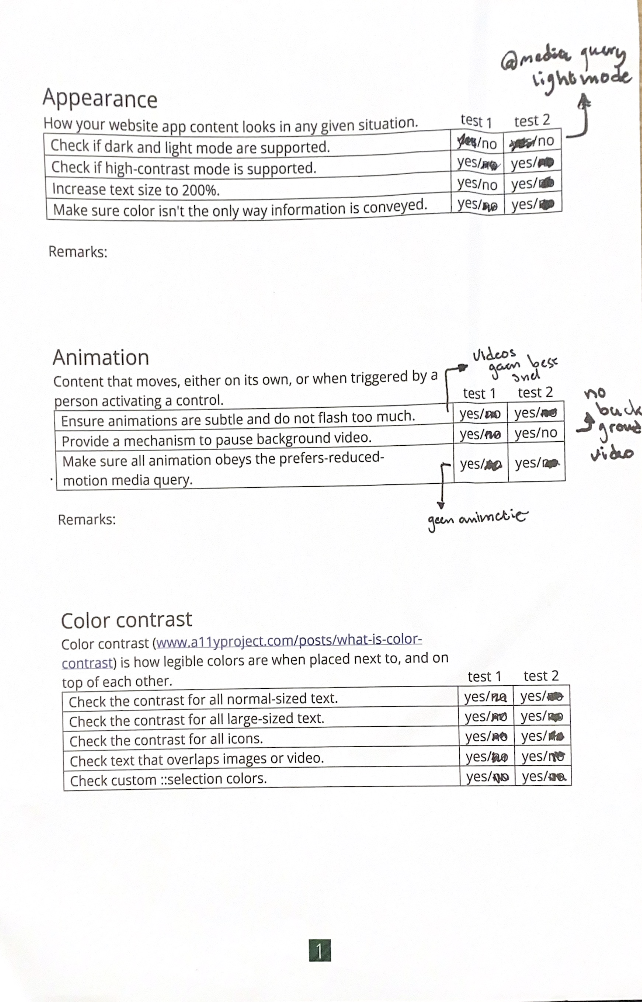 @media query
light mode
Appearance
How your website app content looks in any given situation. test 1 test 2
Check if dark and light mode are supported. yes/no yes/no
Check if high-contrast mode is supported. yes/no yes/no
Increase text size to 200%. yes/no yes/no
Make sure color isn't the only way information is conveyed. yes/no yes/no
Remarks:
Videos
gaan best
snel
Animation
Content that moves, either on its own, or when triggered by a
person activating a control. test 1 test 2
Ensure animations are subtle and do not flash too much. yes/no yes/no
Provide a mechanism to pause background video. yes/no yes/no
Make sure all animation obeys the prefers-reduced-
motion media query. yes/no yes/no
no
back
ground
video
geen animatie
Remarks:
Color contrast
Color contrast (www.a11yproject.com/posts/what-is-color-
contrast) is how legible colors are when placed next to, and on
top of each other. test 1 test 2
Check the contrast for all normal-sized text. yes/no yes/no
Check the contrast for all large-sized text. yes/no yes/no
Check the contrast for all icons. yes/no yes/no
Check text that overlaps images or video. yes/no yes/no
Check custom ::selection colors. yes/no yes/no
1